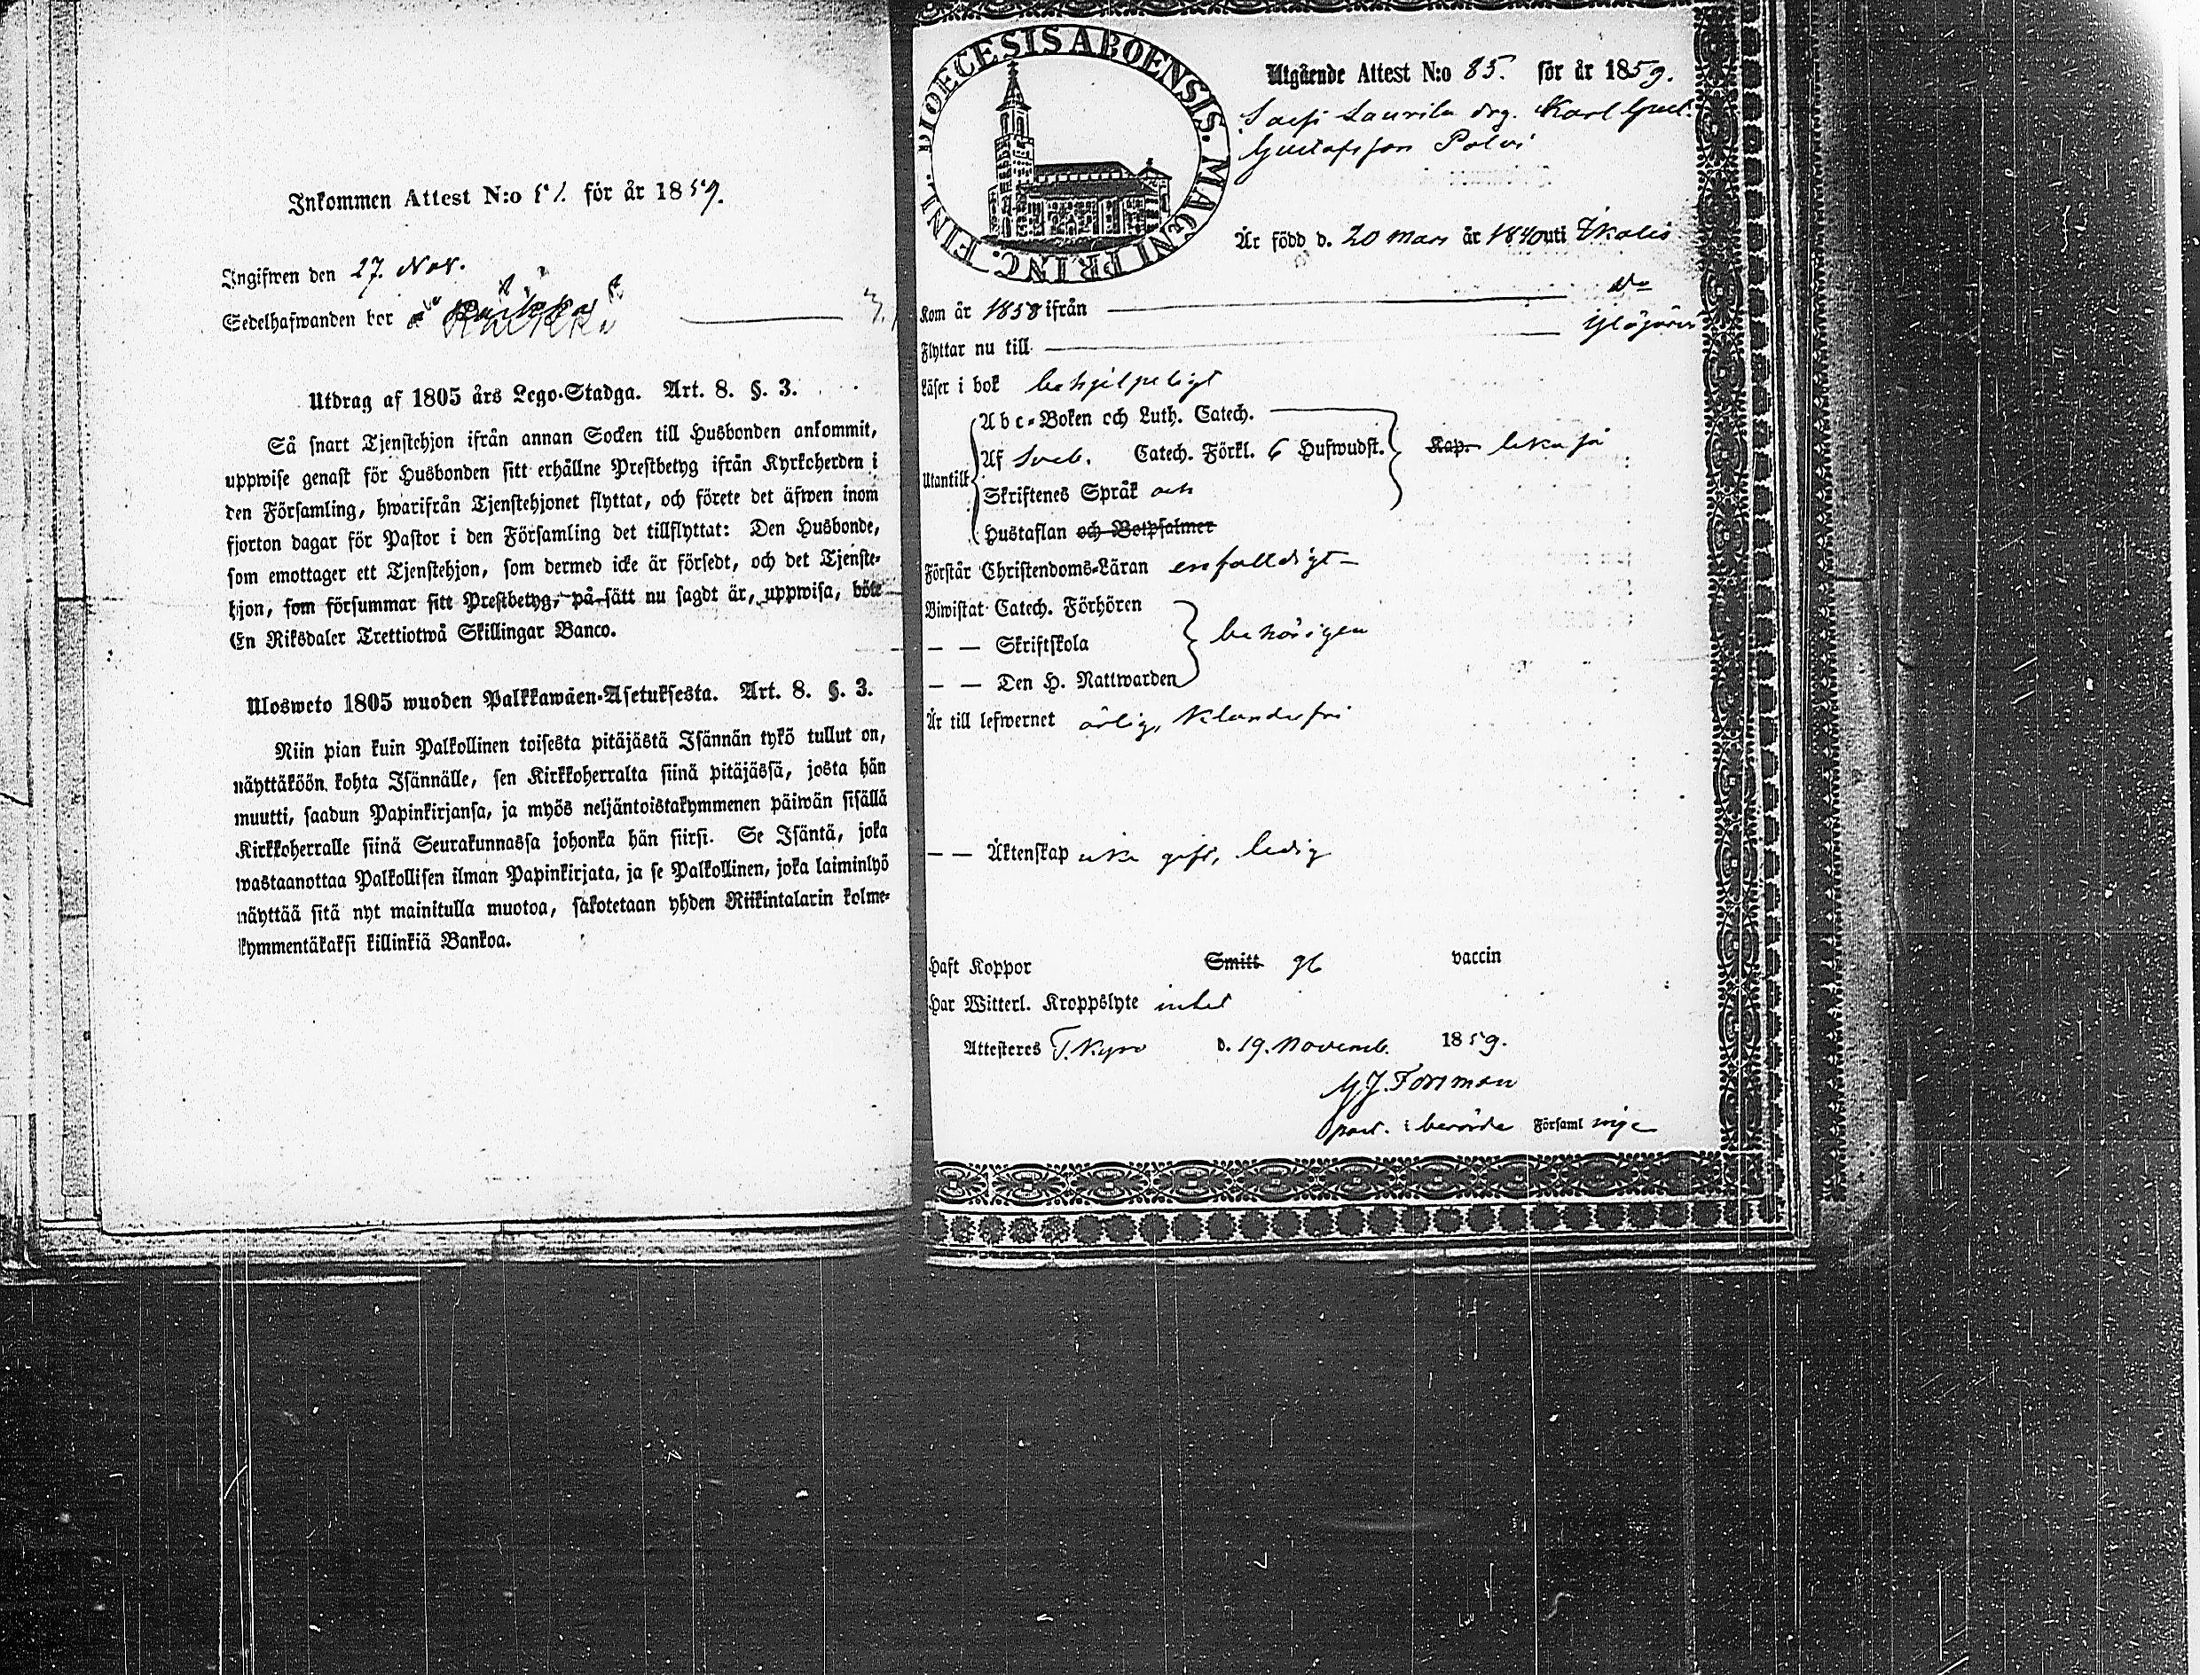 Inkommen Attest N:o 51. för år 1859.
Ingifwen den 27. Nov.
Sedelhafwanden bor å
Utdrag af 1805 års Lego-Stadga. Art. 8. §. 3.
Så snart Tjenstehjon ifrån annan Socken till Husbonden ankommit,
uppwise genast för Husbonden sitt erhållne Prestbetyg ifrån Kyrkoherden i
den Församling, hwarifrån Tjenstehjonet flyttat, och förete det äfwen inom
fjorton dagar för Pastor i den Församling det tillflyttat: Den Husbonde,
som emottager ett Tjenstehjon, som dermed icke är försedt, och det Tjenste-
hjon, som försummar sitt Prestbetyg, på sätt nu sagdt är, uppwisa, böte
En Riksdaler Trettiotwå Skillingar Banco.
Ulosweto 1805 wuoden Palkkawäen-Asetuksesta. Art. 8. §. 3.
Niin pian kuin Palkollinen toisesta pitäjästä Isännän tykö tullut on,
näyttäköön kohta Isännälle, sen Kirkkoherralta siinä pitäjässä, josta hän
muutti, saadun Papinkirjansa, ja myös neljäntoistakymmenen päiwän sisällä
Kirkkoherralle siinä Seurakunnassa johonka hän siirsi. Se Isäntä, joka
wastaanottaa Palkollisen ilman Papinkirjata, ja se Palkollinen, joka laiminlyö
näyttää sitä nyt mainitulla muotoa, sakotetaan yhden Riikintalarin kolme-
kymmentäkaksi killinkiä Bankoa.
DIOECESIS ABOENSIS. MAGNI PRINC. FINL.
Utgående Attest N:o 85. för år 1859.
Laurila drg. Karl Gust.
Gustafsson Polvi
Är född d. 20 Mars år 1840 uti Ikalis
Kom år 1858 ifrån do
Flyttar nu till Ylöjärvi
Läser i bok behjelpeligt
Abc-Boken och Luth. Catech.
Utantill Af Sveb. Catech. Förkl. 6 Hufwudst. Kap. lika så
Skriftenes Språk och
Hustaflan och Botpsalmer
Förstår Christendoms-Läran enfalldigt
Biwistat Catech. Förhören
— — Skriftskola behörigen
— — Den H. Nattwarden
Är till lefwernet ärlig, klanderfri
— — Äktenskap icke gift, ledig
Haft Koppor Smitt gb vaccin
Har Witterl. Kroppslyte intet
Attesteres T. Kyro d. 19. Novemb. 1859.
M J. Forsman
past. i berörde Församl inge